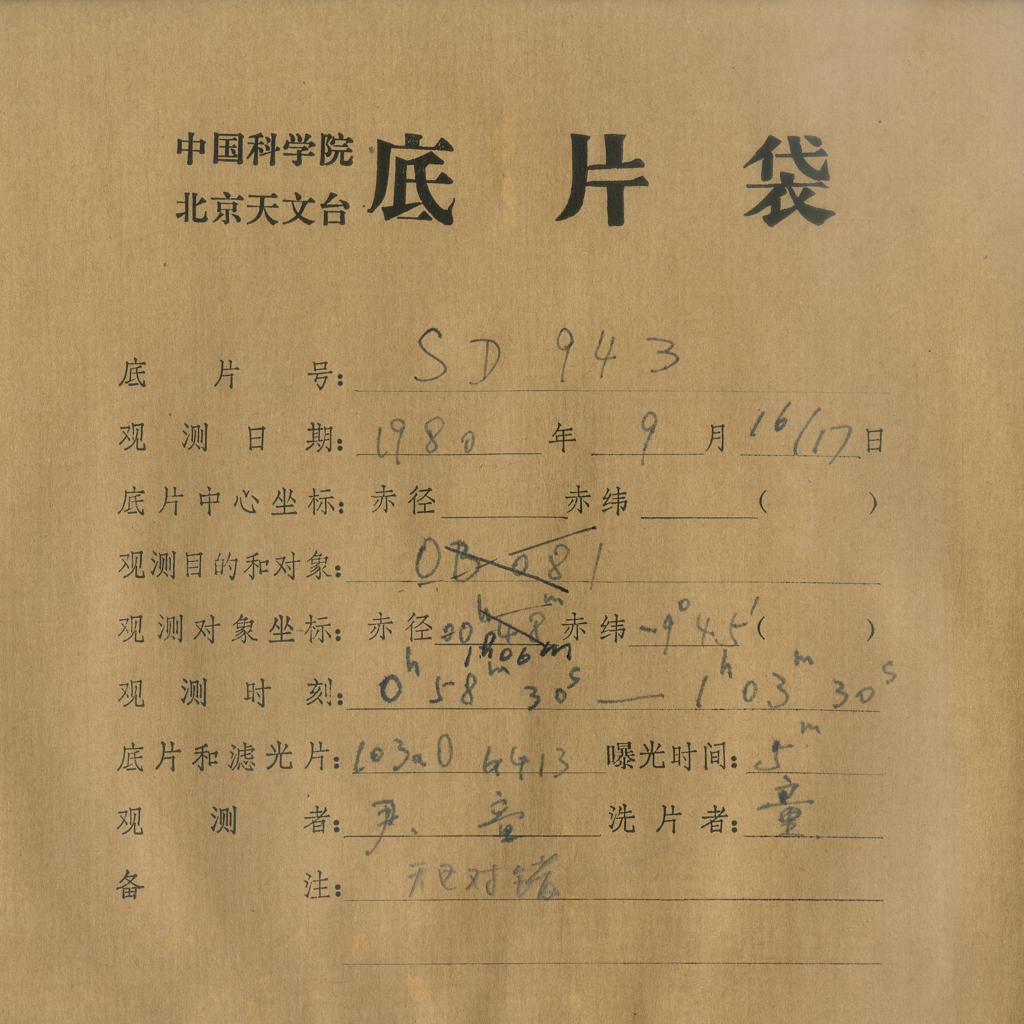 中国科学院
北京天文台
底片袋
底片号: SD 943
观测日期: 1980 年 9 月 16/17 日
底片中心坐标: 赤径 赤纬 ( )
观测目的和对象: OB 081
观测对象坐标: 赤径 00h 48m 赤纬 -9° 45′ ( )
1h 06m
观测时刻: 0h 58m 30s — 1h 03m 30s
底片和滤光片: 103aO GG413 曝光时间: 5m
观测者: 尹、童 洗片者: 童
备注: 天区对错